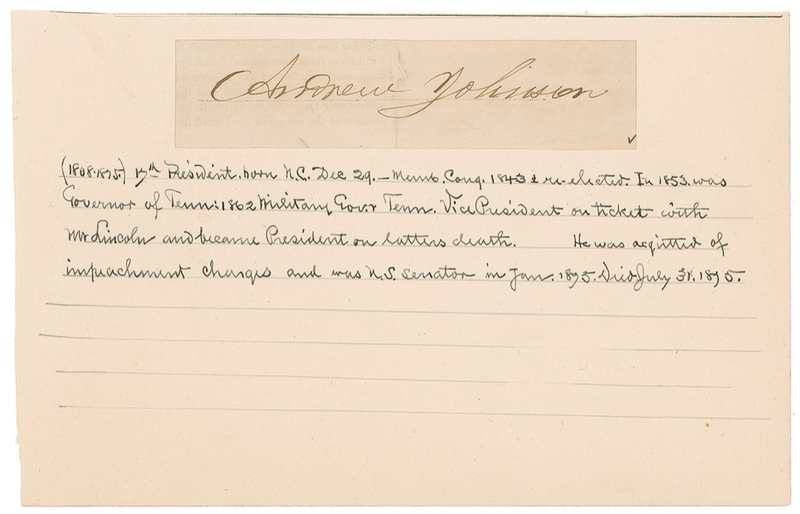 Andrew Johnson
(1808-1875) 17th President. born N.C. Dec 29. – Memb. Cong. 1843 & re-elected. In 1853. was
Governor of Tenn: 1862 Military Gov:r Tenn. Vice President on ticket with
Mr Lincoln and became President on latters death. He was acquitted of
impeachment charges and was U.S. Senator in Jan. 1875. Died July 31. 1875.